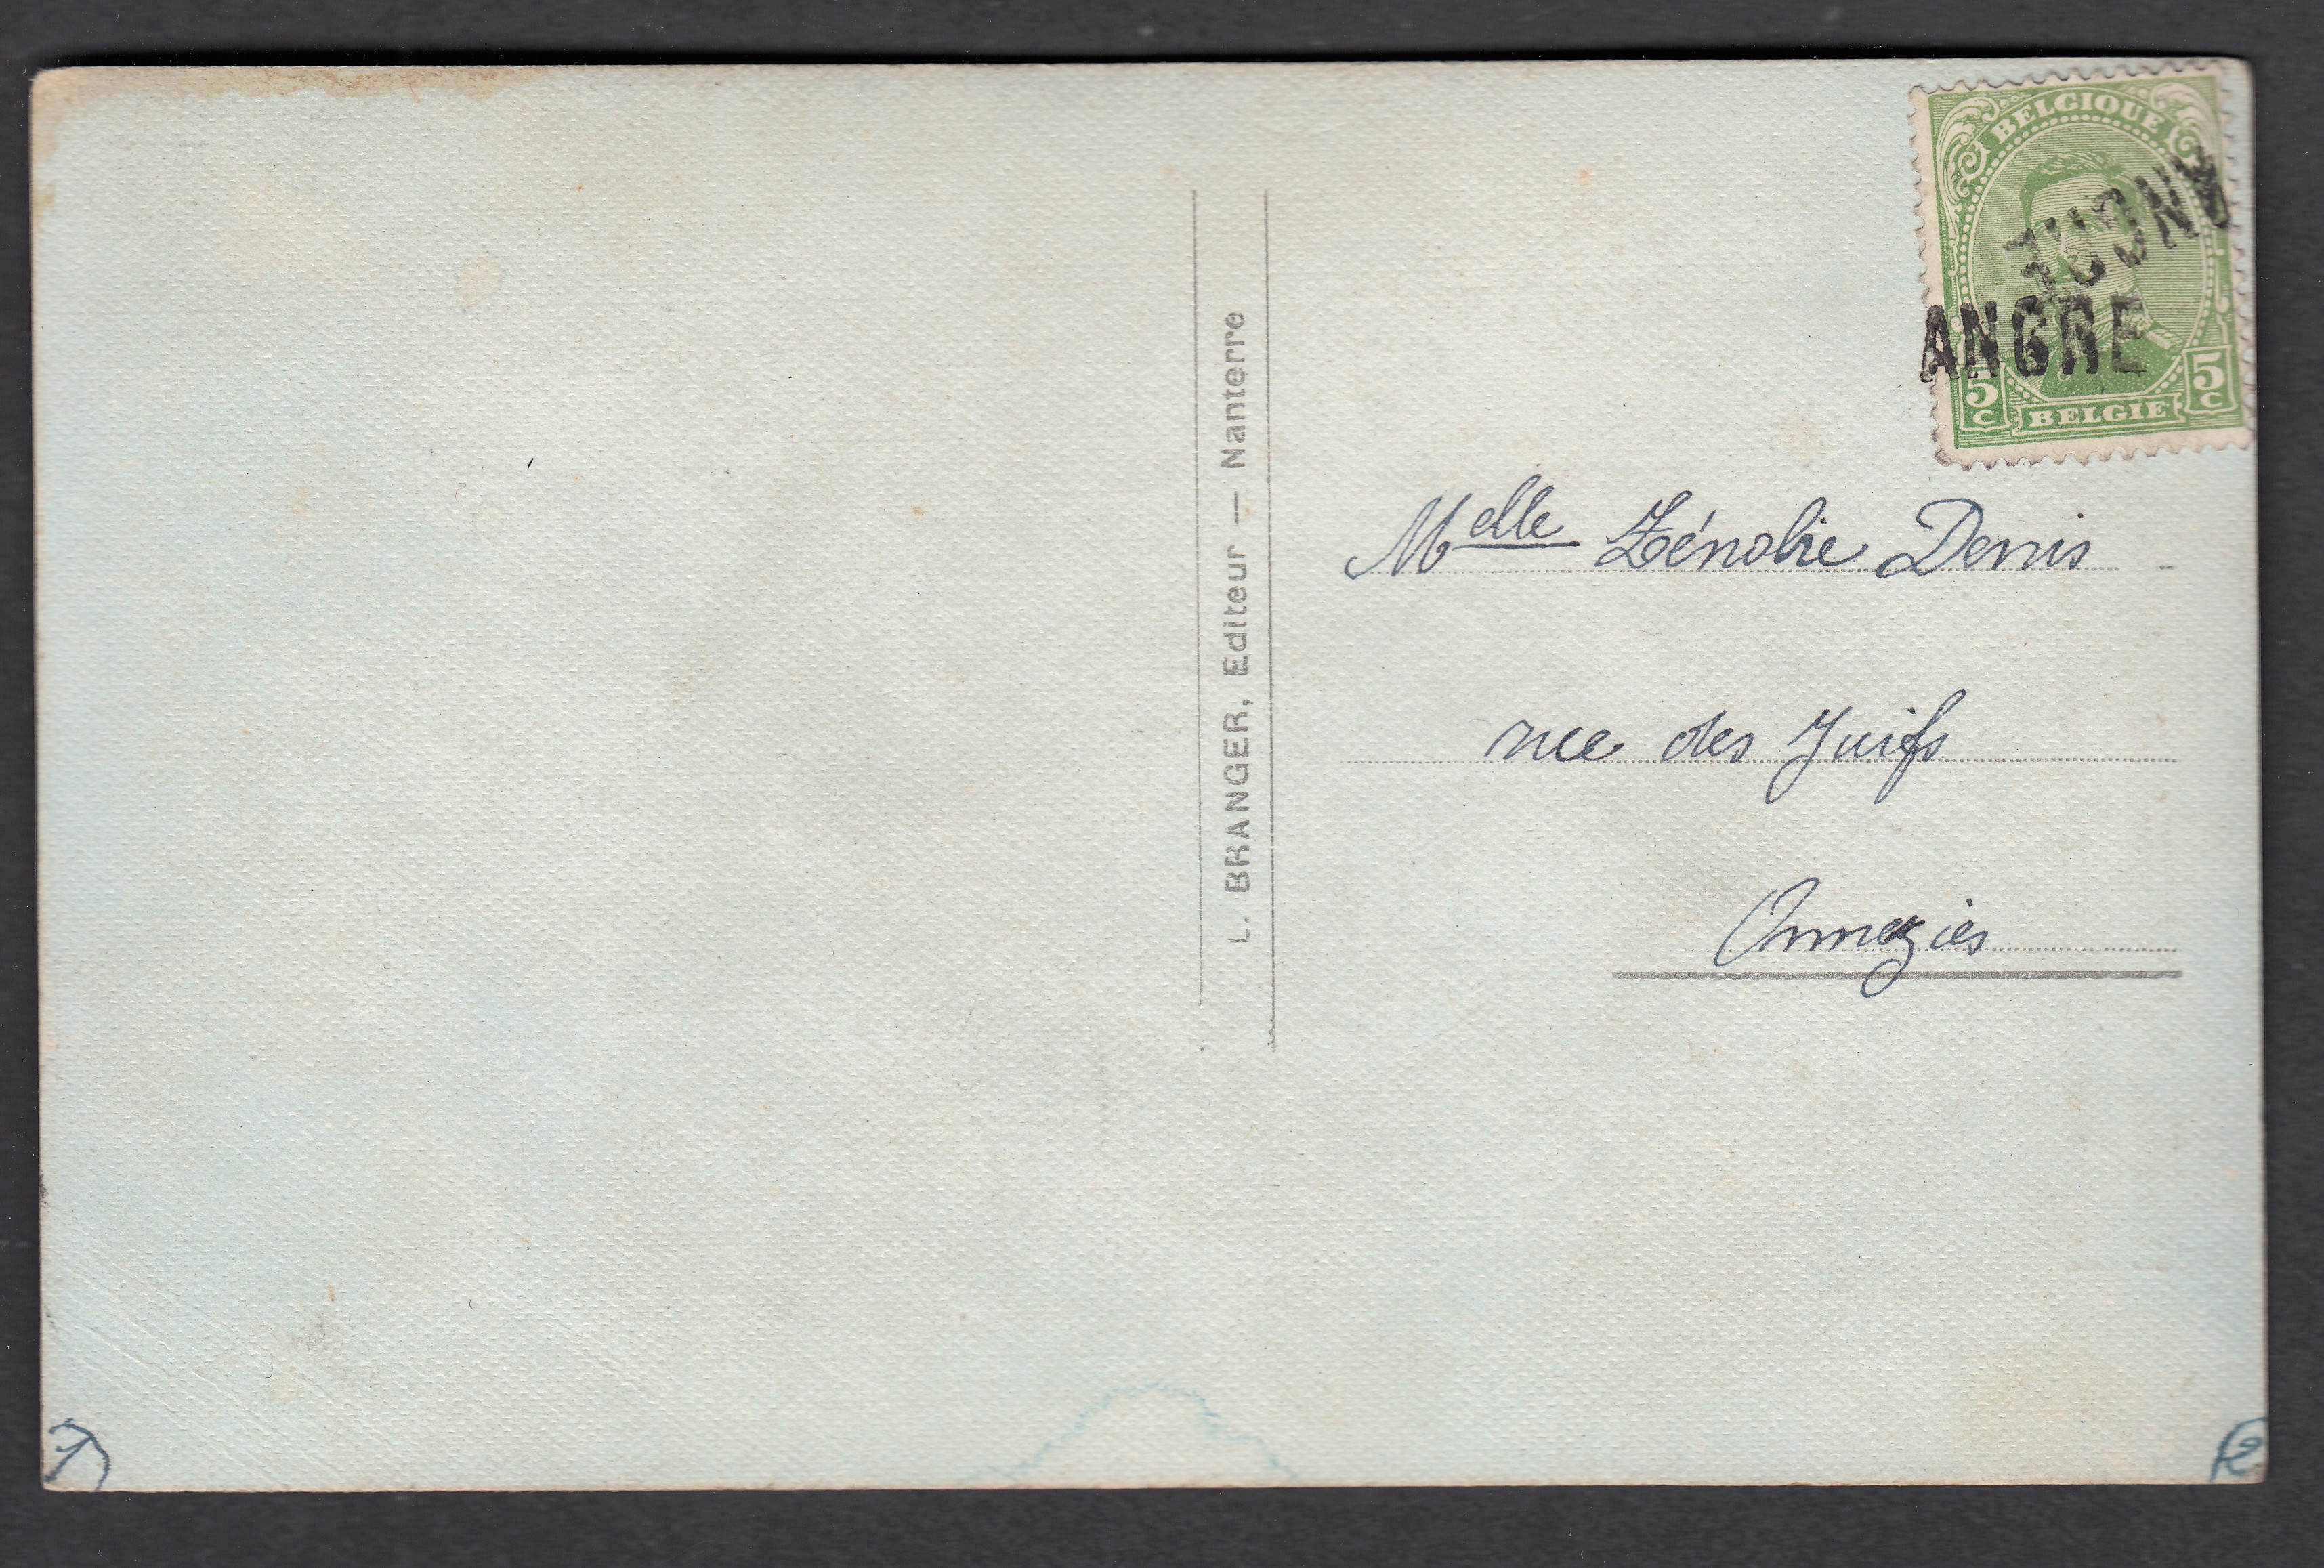 BELGIQUE
ANGRE
ANGRE
5 C 5 C
BELGIE
L. BRANGER, Editeur — Nanterre
Melle Zénobie Denis
rue des Juifs
Onnezies